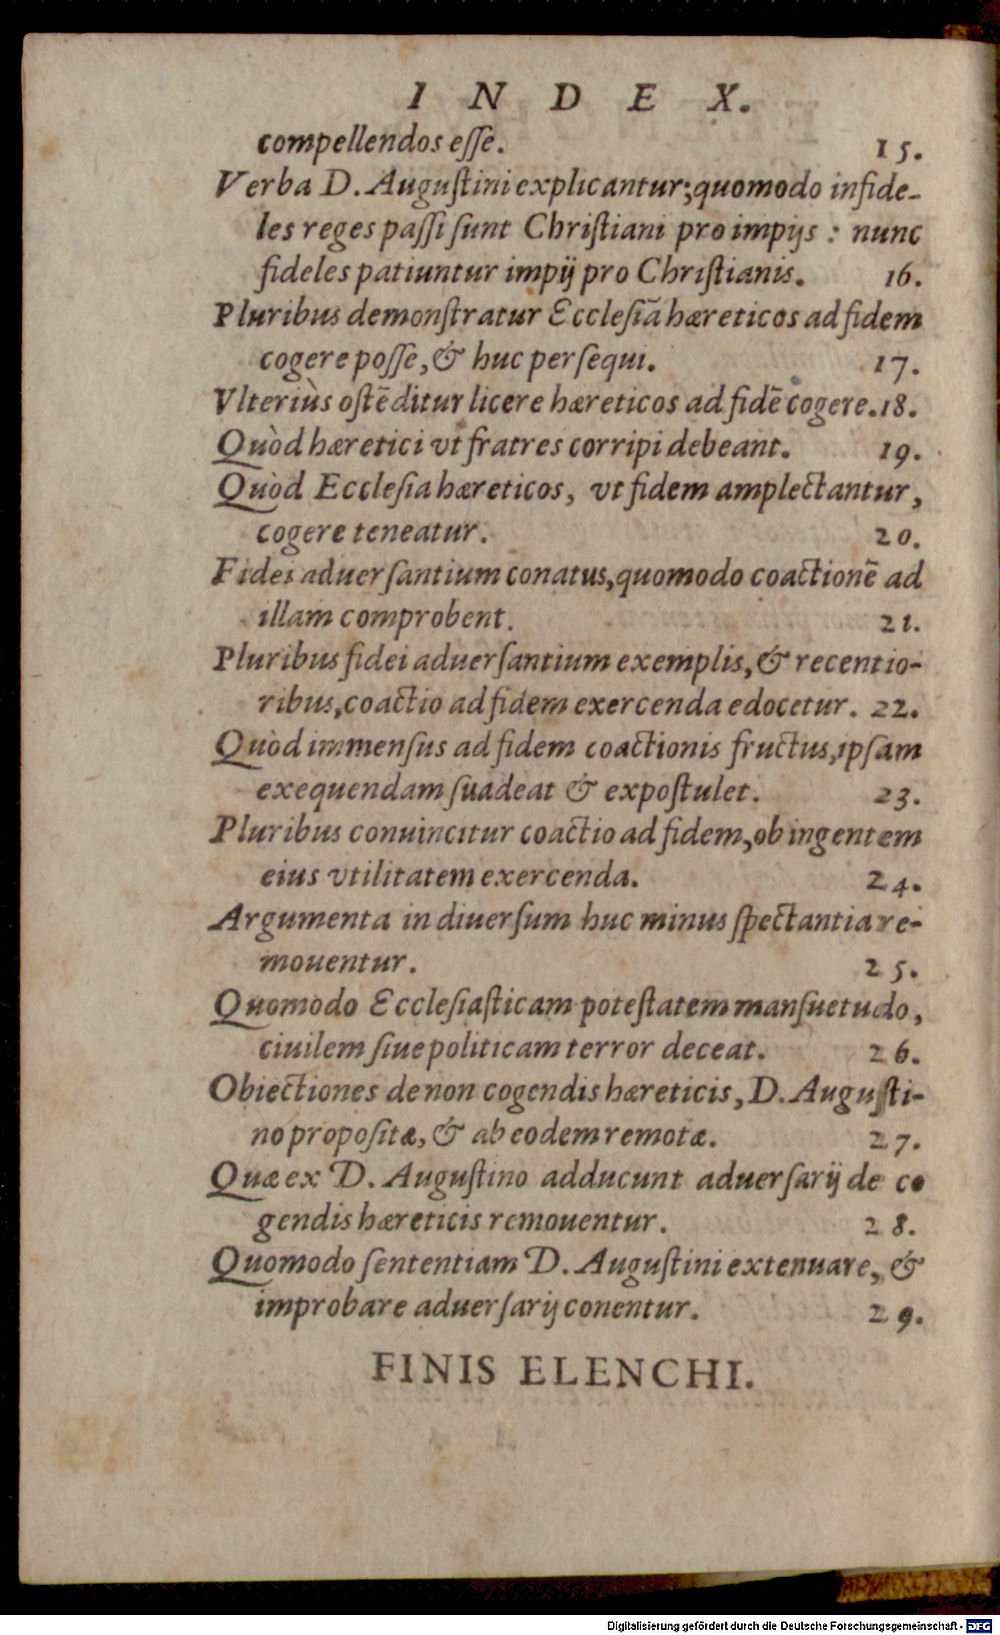 INDEX.
compellendos eſſe. 15.
Verba D. Auguſtini explicantur; quomodo infide-
les reges paſſi ſunt Chriſtiani pro impijs : nunc
fideles patiuntur impij pro Chriſtianis. 16.
Pluribus demonſtratur Eccleſiã hæreticos ad fidem
cogere poſſe, & huc perſequi. 17.
Vlteriùs oſtẽditur licere hæreticos ad fidẽ cogere. 18.
Quòd hæretici vt fratres corripi debeant. 19.
Quòd Eccleſia hæreticos, vt fidem amplectantur,
cogere teneatur. 20.
Fidei aduerſantium conatus, quomodo coactionẽ ad
illam comprobent. 21.
Pluribus fidei aduerſantium exemplis, & recentio-
ribus, coactio ad fidem exercenda edocetur. 22.
Quòd immenſus ad fidem coactionis fructus, ipſam
exequendam ſuadeat & expoſtulet. 23.
Pluribus conuincitur coactio ad fidem, ob ingentem
eius vtilitatem exercenda. 24.
Argumenta in diuerſum huc minus ſpectantia re-
mouentur. 25.
Quomodo Eccleſiaſticam poteſtatem manſuetudo,
ciuilem ſiue politicam terror deceat. 26.
Obiectiones de non cogendis hæreticis, D. Auguſti-
no propoſitæ, & ab eodem remotæ. 27.
Quæ ex D. Auguſtino adducunt aduerſarij de co
gendis hæreticis remouentur. 28.
Quomodo ſententiam D. Auguſtini extenuare, &
improbare aduerſarij conentur. 29.
FINIS ELENCHI.
Digitalisierung gefördert durch die Deutsche Forschungsgemeinschaft - DFG